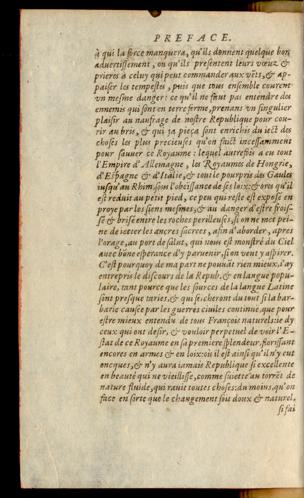 PREFACE.
à qui la force manquera, qu'ils donnent quelque bon
aduertissement, ou qu'ils presentent leurs vœuz &
prieres à celuy qui peut commander aux vẽts, & ap-
paiser les tempestes, puis que tous ensemble courent
vn mesme danger: ce qu'il ne faut pas entendre des
ennemis qui sont en terre ferme, prenans vn singulier
plaisir au naufrage de nostre Republique pour cou-
rir au bris, & qui ja pieça sont enrichis du iect des
choses les plus precieuses qu'on faict incessamment
pour sauuer ce Royaume: lequel autrefois a eu tout
l'Empire d'Allemagne, les Royaumes de Hongrie,
d'Espagne & d'Italie, & tout le pourpris des Gaules
iusqu'au Rhim, sous l'obeissance de ses loix: & ores qu'il
est reduit au petit pied, ce peu qui reste est exposé en
proye par les siens mesmes, & au danger d'estre frois-
sé & brisé entre les roches perilleuses, si on ne met pei-
ne de ietter les ancres sacrees, afin d'aborder, apres
l'orage, au port de salut, qui nous est monstré du Ciel
auec bõne esperance d'y paruenir, si on veut y aspirer.
C'est pourquoy de ma part ne pouuãt rien mieux, i'ay
entrepris le discours de la Repub. & en langue popu-
laire, tant pource que les sources de la langue Latine
sont presque taries, & qui secheront du tout si la bar-
barie causee par les guerres ciuiles continue, que pour
estre mieux entendu de tous François naturels: ie dy
ceux qui ont desir, & vouloir perpetuel de voir l'E-
stat de ce Royaume en sa premiere splendeur, florissant
encores en armes & en loix: où il est ainsi qu'il n'y eut
oncques, & n'y aura iamais Republique si excellente
en beauté qui ne vieillisse, comme suiette au torrẽt de
nature fluide, qui rauit toutes choses: du moins, qu'on
face en sorte que le changement soit doux & naturel,
si fai